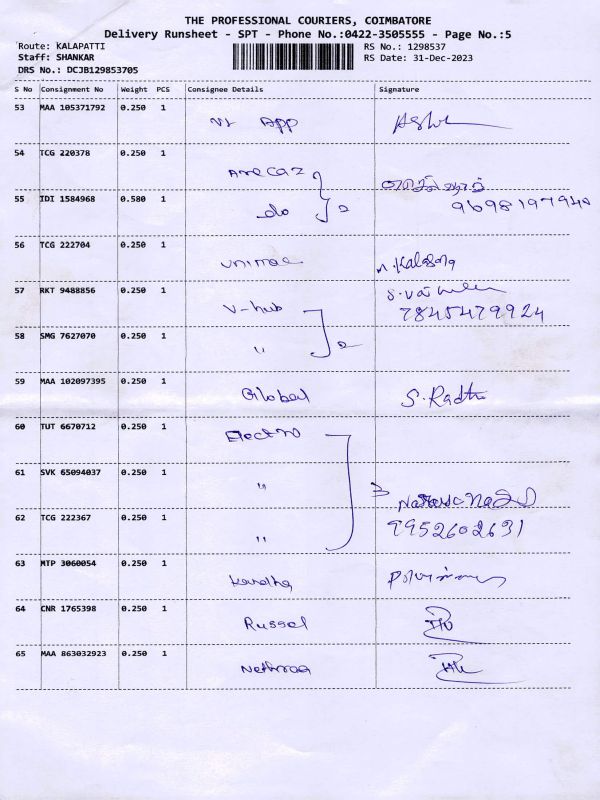 THE PROFESSIONAL COURIERS, COIMBATORE
Delivery Runsheet - SPT - Phone No.:0422-3505555 - Page No.:5
Route: KALAPATTI
RS No.: 1298537
Staff: SHANKAR
RS Date: 31-Dec-2023
DRS No.: DCJB129853705
S No Consignment No Weight PCS Consignee Details Signature
53 MAA 105371792 0.250 1 App
54 TCG 220378 0.250 1 Arecaz
55 IDI 1584968 0.580 1 do 2 9698197940
56 TCG 222704 0.250 1
57 RKT 9488856 0.250 1 V-hub
7845479924
58 SMG 7627070 0.250 1 " 2
59 MAA 102097395 0.250 1 Global S.Radha
60 TUT 6670712 0.250 1 Electro
61 SVK 65094037 0.250 1 " 3
62 TCG 222367 0.250 1 " 9952602631
63 MTP 3060054 0.250 1
64 CNR 1765398 0.250 1 Russel
65 MAA 863032923 0.250 1 Nethraa